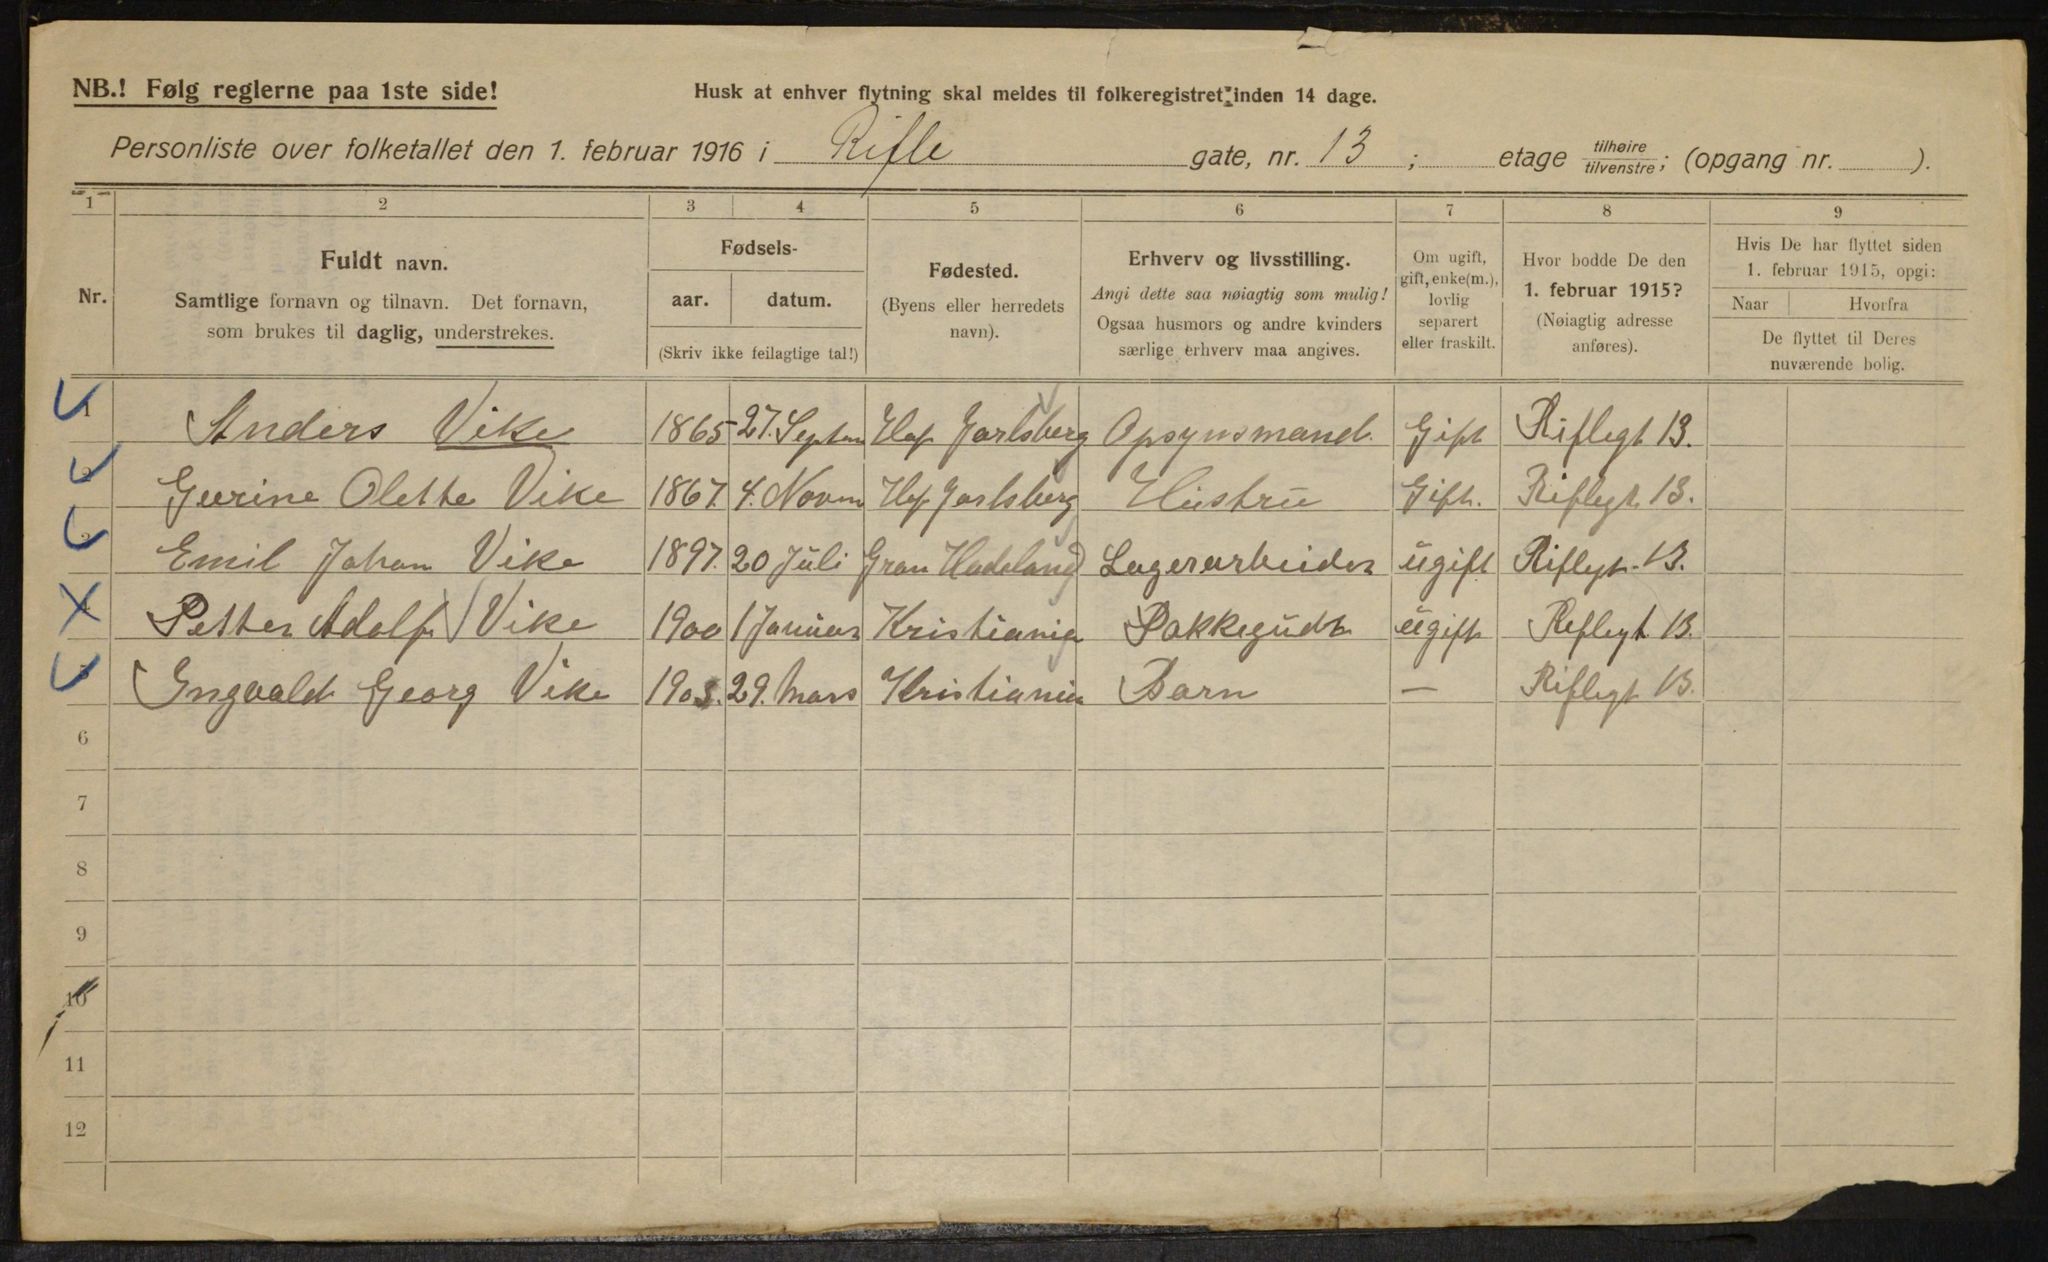 NB.! Følg reglerne paa 1ste side!
Husk at enhver flytning skal meldes til folkeregistret inden 14 dage.
Personliste over folketallet den 1. februar 1916 i Rifle gate, nr. 13; etage tilhøire/tilvenstre; (opgang nr. ).
1 2 3 4 5 6 7 8 9
Nr.
Fuldt navn.
Samtlige fornavn og tilnavn. Det fornavn,
som brukes til daglig, understrekes.
Fødsels-
aar. datum.
(Skriv ikke feilagtige tal!)
Fødested.
(Byens eller herredets
navn).
Erhverv og livsstilling.
Angi dette saa nøiagtig som mulig!
Ogsaa husmors og andre kvinders
særlige erhverv maa angives.
Om ugift,
gift, enke(m.),
lovlig
separert
eller fraskilt.
Hvor bodde De den
1. februar 1915?
(Nøiagtig adresse
anføres).
Hvis De har flyttet siden
1. februar 1915, opgi:
Naar Hvorfra
De flyttet til Deres
nuværende bolig.
1 Anders Vike 1865 27. Septem Hof Jarlsberg Opsynsmand. Gift Riflegt 13.
2 Gurine Olette Vike 1867. 4. Novm Hof Jarlsberg Hustru Gift. Riflegt 13.
3 Emil Johan Vike 1897. 20 Juli Gran Hadeland Lagerarbeider ugift Riflegt. 13.
4 Petter Adolf Vike 1900 1 Januar Kristiania Pakkegudt ugift Riflegt 13.
5 Ingvald Georg Vike 1903. 29. Mars Kristiania Barn — Riflegt 13.
6
7
8
9
10
11
12